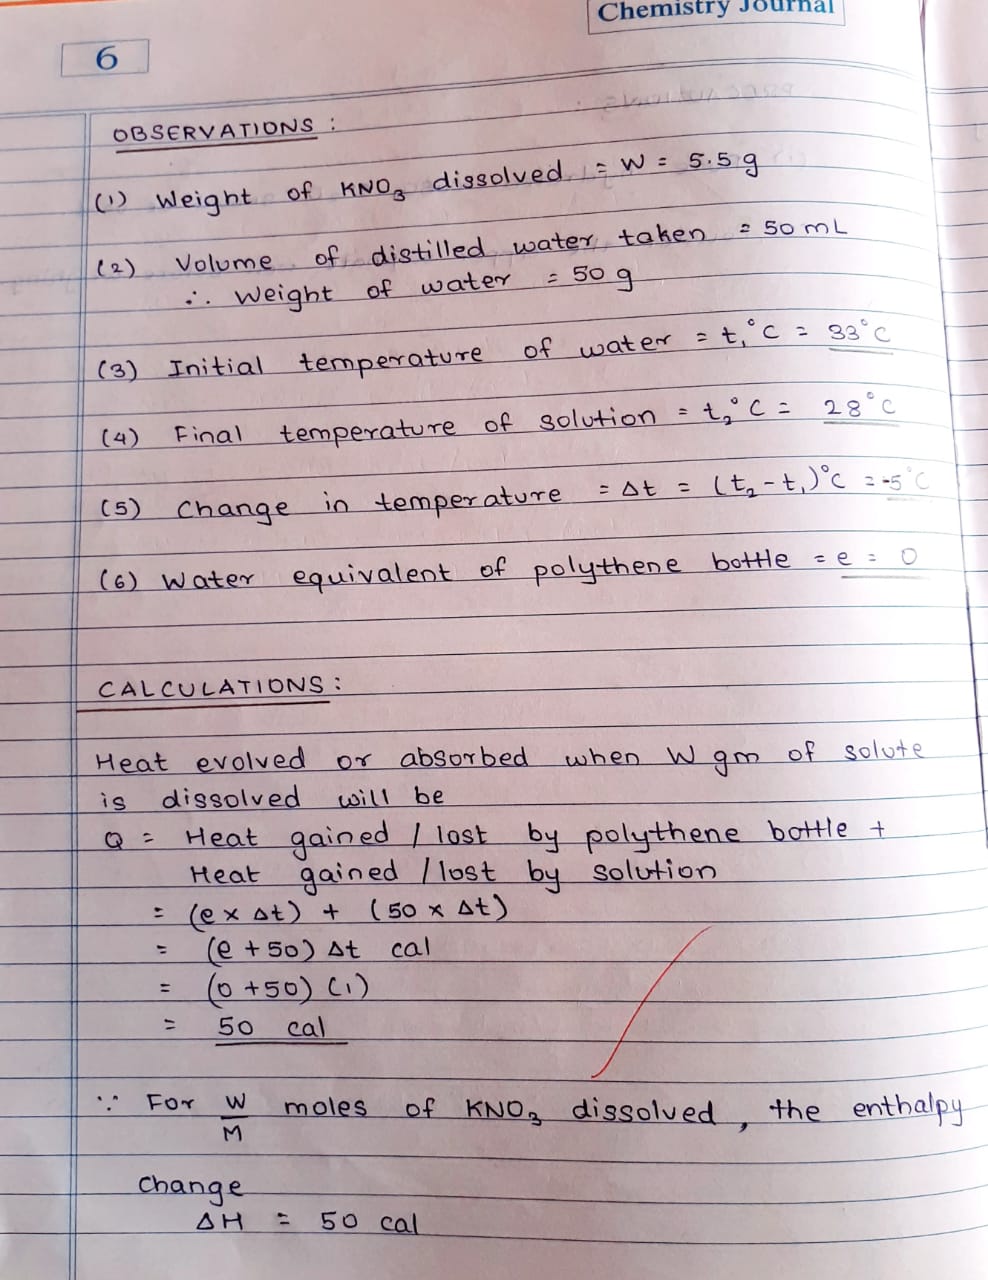 Chemistry Journal
6
OBSERVATIONS :
(1) Weight of KNO₃ dissolved = W = 5.5 g
(2) Volume of distilled water taken = 50 mL
∴ Weight of water = 50 g
(3) Initial temperature of water = t₁°C = 33°C
(4) Final temperature of solution = t₂°C = 28°C
(5) Change in temperature = Δt = (t₂ - t₁)°C = -5°C
(6) Water equivalent of polythene bottle = e = 0
CALCULATIONS :
Heat evolved or absorbed when W gm of solute
is dissolved will be
Q = Heat gained / lost by polythene bottle +
Heat gained / lost by solution
= (e x Δt) + (50 x Δt)
= (e + 50) Δt cal
= (0 + 50) (1)
= 50 cal
∵ For W/M moles of KNO₃ dissolved, the enthalpy
change
ΔH = 50 cal